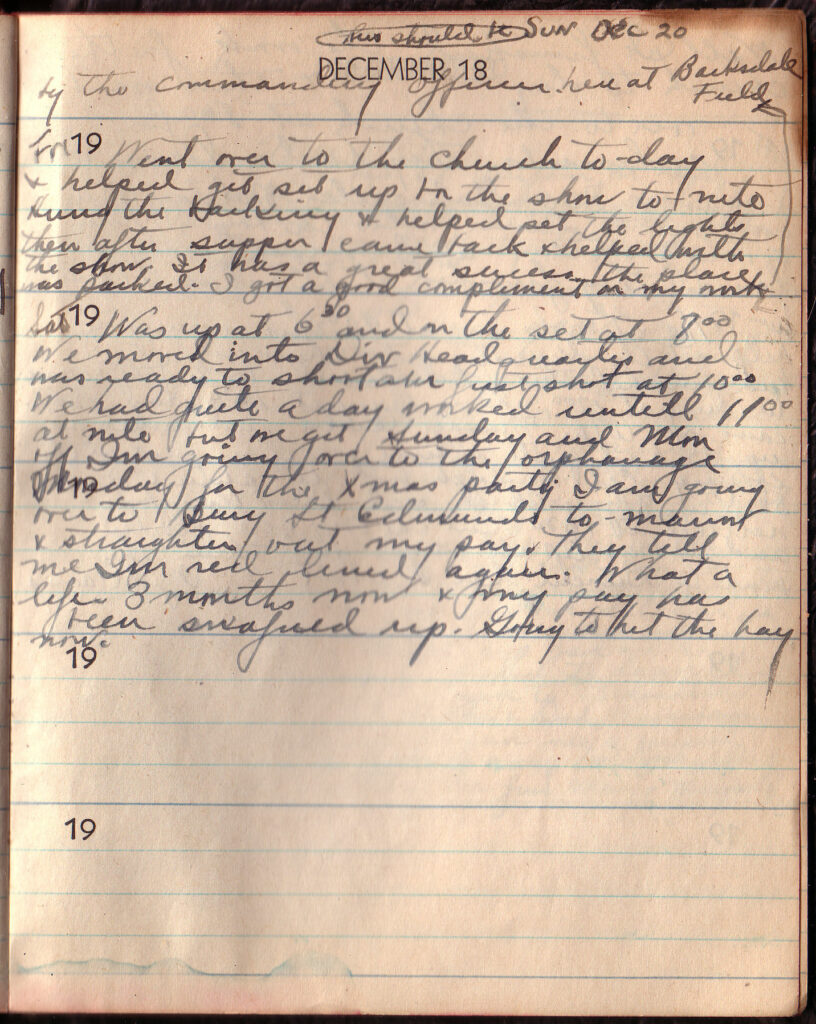 this should be SUN DEC 20
DECEMBER 18
by the commanding officer here at Barksdale
Field
Fri 19 Went over to the church to-day
& helped get set up for the show to-nite
Hung the backing & helped set the lights
then after supper came back & helped with
the show. It was a great success the place
was packed. I got a good compliment on my work
Sat 19 Was up at 6 30 and on the set at 8 00
We moved into Div Headquarters and
was ready to shoot our first shot at 10 00
We had quite a day worked untill 11 00
at nite but we get Sunday and Mon
off I'm going over to the orphanage
19 for the Xmas party I am going
over to Bury St Edmunds to-morrow
& straighten out my pay. They tell
me I'm red lined again. What a
life 3 months now & my pay has
been snafued up. Going to hit the hay
now.
19
19